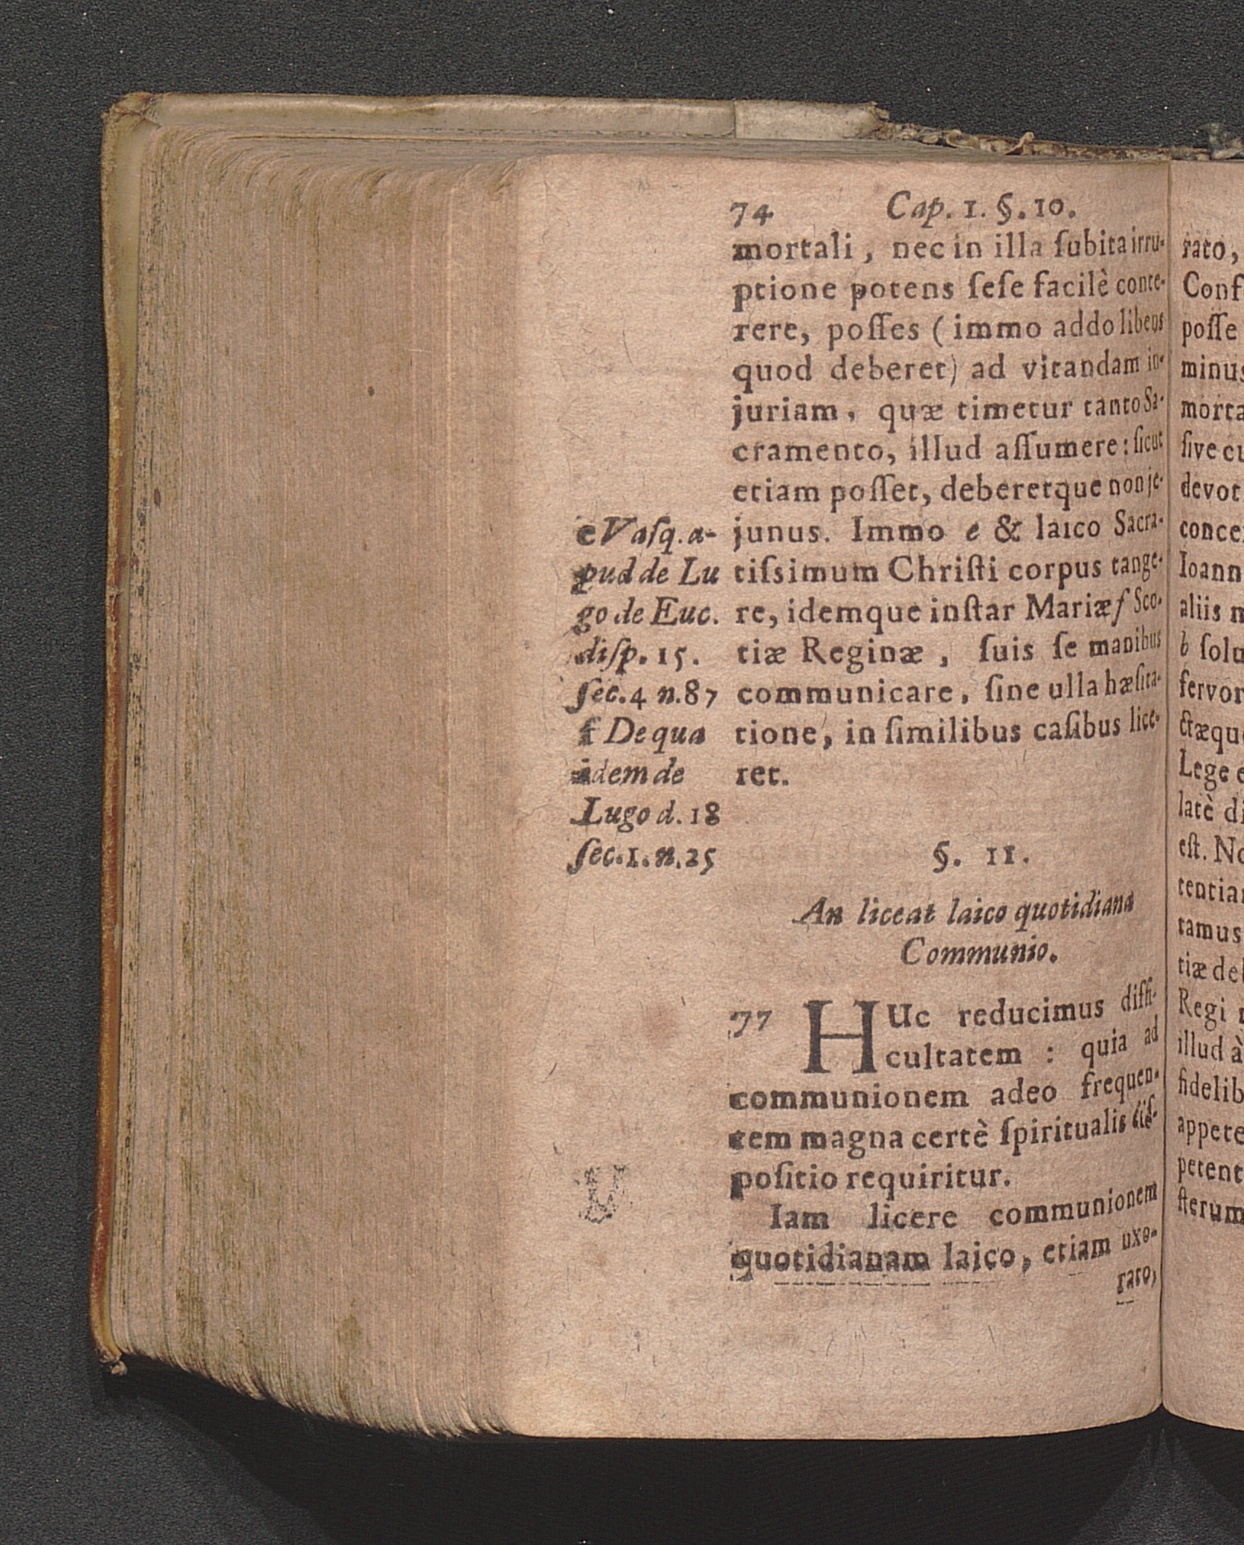 74 Cap. 1. §. 10.
mortali, nec in illa ſubita irru-
ptione potens ſeſe facilè conte-
rere, poſſes (immo addo libens
quod deberet) ad vitandam in-
juriam, quæ timetur tanto Sa-
cramento, illud aſſumere: ſicut
etiam poſſet, deberetque non je-
junus. Immo e & laico Sacra-
tiſsimum Chriſti corpus tange-
re, idemque inſtar Mariæ f Sco-
tiæ Reginæ, ſuis ſe manibus
communicare, ſine ulla hæſita-
tione, in ſimilibus caſibus lice-
ret.
e Vaſq. a-
pud de Lu
go de Euc.
diſp. 15.
ſec. 4 n. 87
f De qua
idem de
Lugo d. 18
ſec. 1. n. 25
§. 11.
An liceat laico quotidiana
Communio.
77 HUc reducimus diffi-
cultatem : quia ad
communionem adeo frequen-
tem magna certè ſpiritualis diſ-
poſitio requiritur.
Iam licere communionem
quotidianam laico, etiam uxo-
rato,
rato,
Conf
poſſe
minus
morta
ſive cu
devot
conce
Ioann
aliis
b ſolu
fervor
ctæqu
Lege
latè di
eſt. No
tentia
tamus
tiæ de
Regi
illud à
fidelib
appete
petent
ſterum